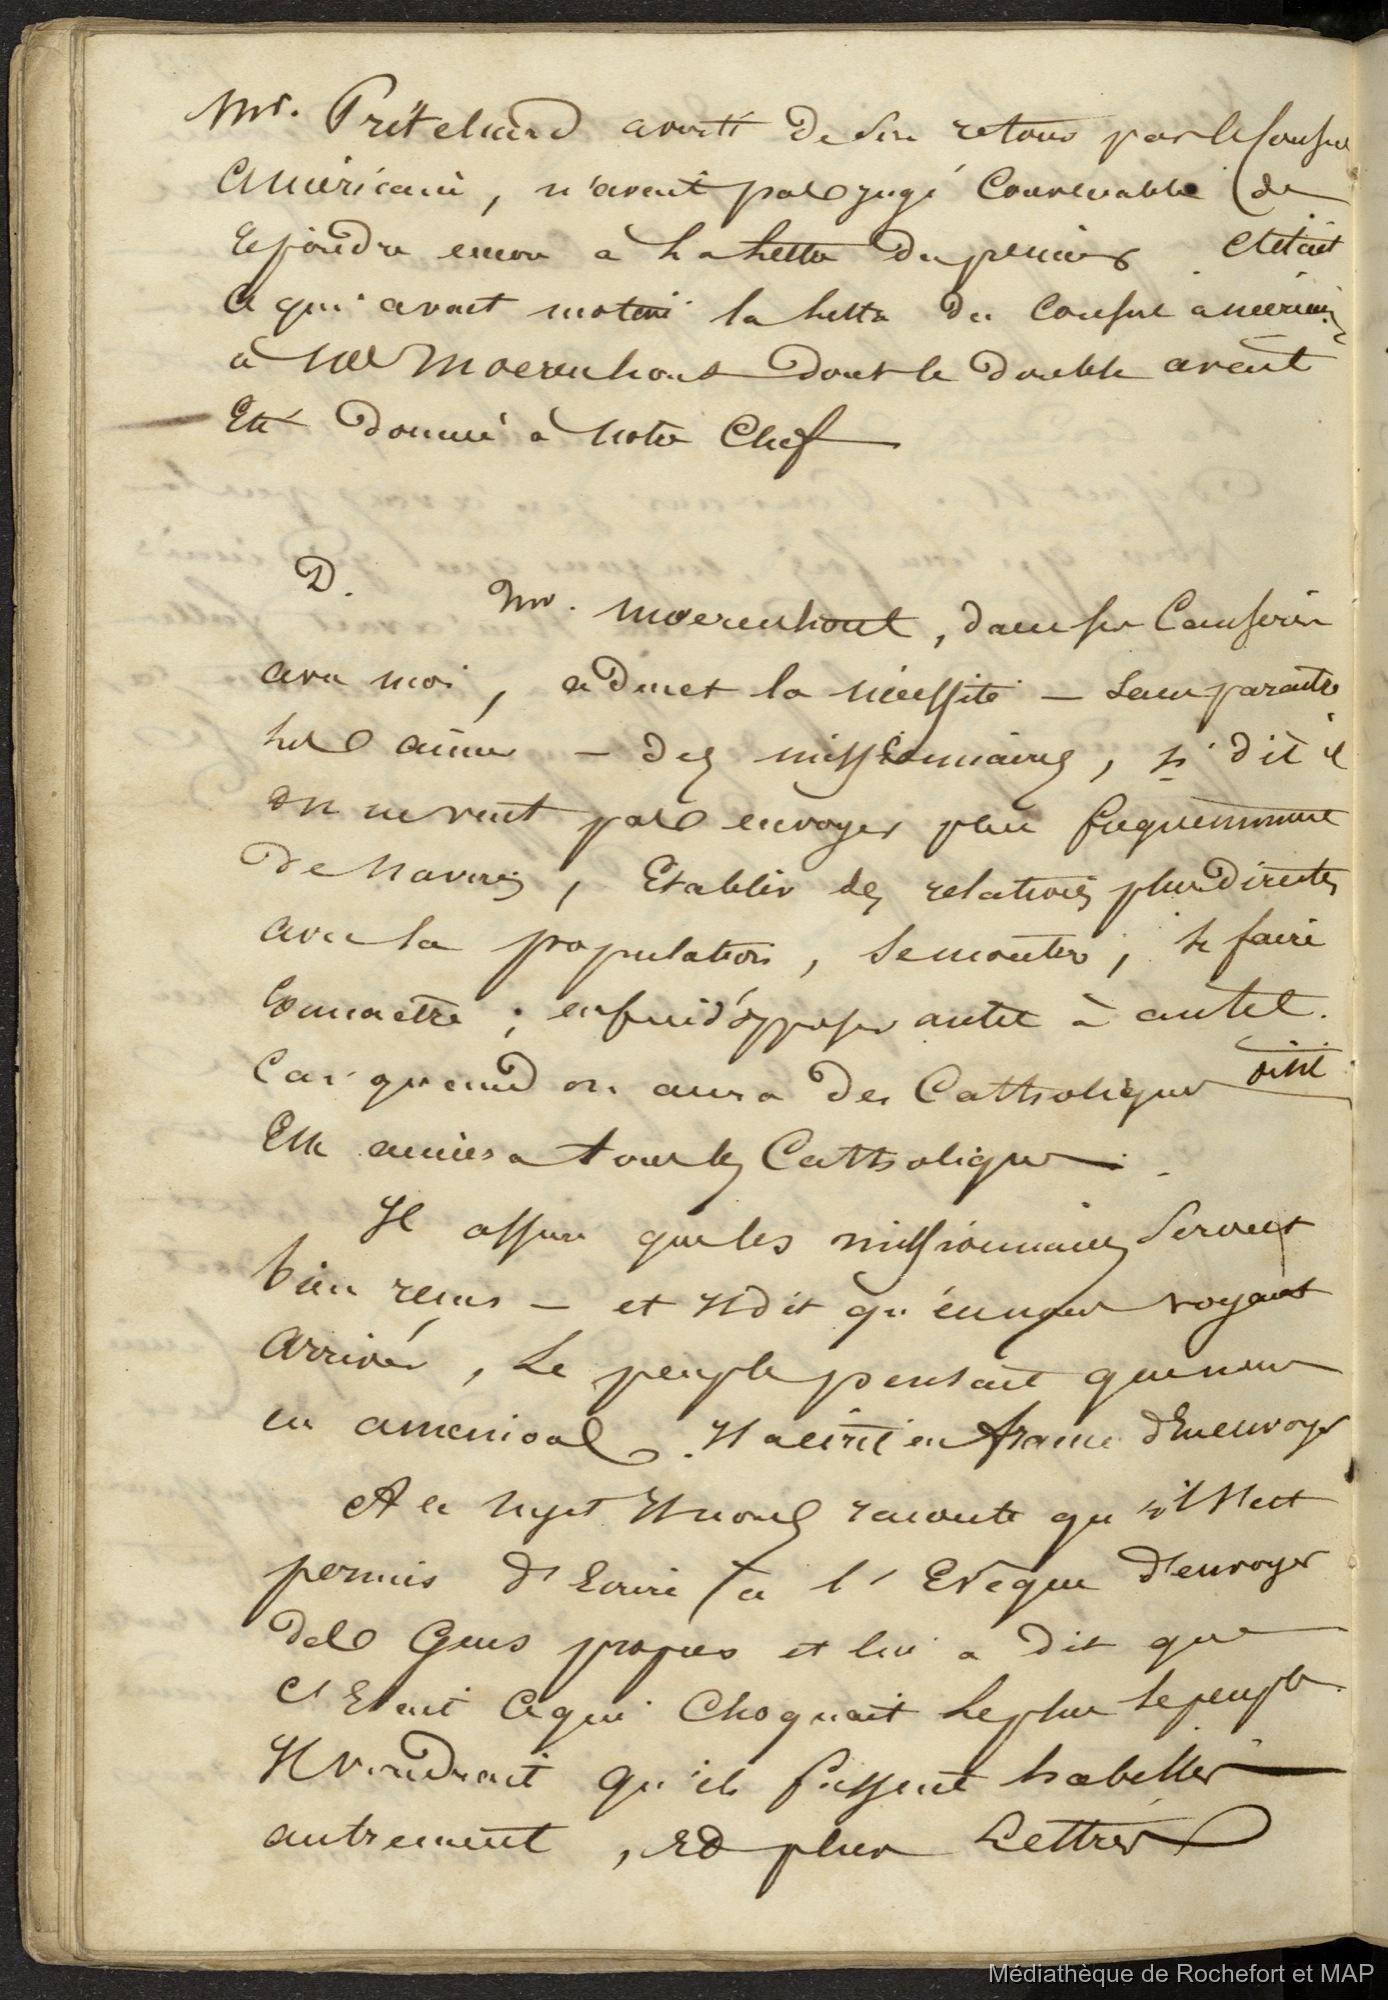 Mr. Pritchard averti de son retour par le Consul
Américain, n'avait pas jugé convenable de
répondre encore à la lettre du premier C'était
ce qui avait motivé la lettre du Consul américain
à Mr Moerenhout dont le double avait
été donné à notre Chef
D. Mr. Moerenhout, dans ses Causeries
avec moi, admet la nécessité — sans paraître
les aimer — des missionnaires, si dit il
on ne veut pas envoyer plus fréquemment
de Navires, Etablir des relations plus directes
avec la population, se montrer, se faire
Connaître ; enfin d'opposer autel à autel.
Car quand on aura des Catholiques
Elle aimera tous les Catholiques.
Il assure que les missionnaires seront
bien reçus — et Il dit qu'en nous voyant
arriver, Le peuple pensait que nous
en amenions. Il a écrit en france d'en envoyer
A ce sujet Il nous raconte qu s'Il est
permis d'Ecrire à l'Evêque d'envoyer
des Gens propres et lui a dit que
c'Etait ce qui Choquait le plus le peuple.
Il voudrait qu'ils fussent habillés
autrement, et plus Lettrés
Médiathèque de Rochefort et MAP